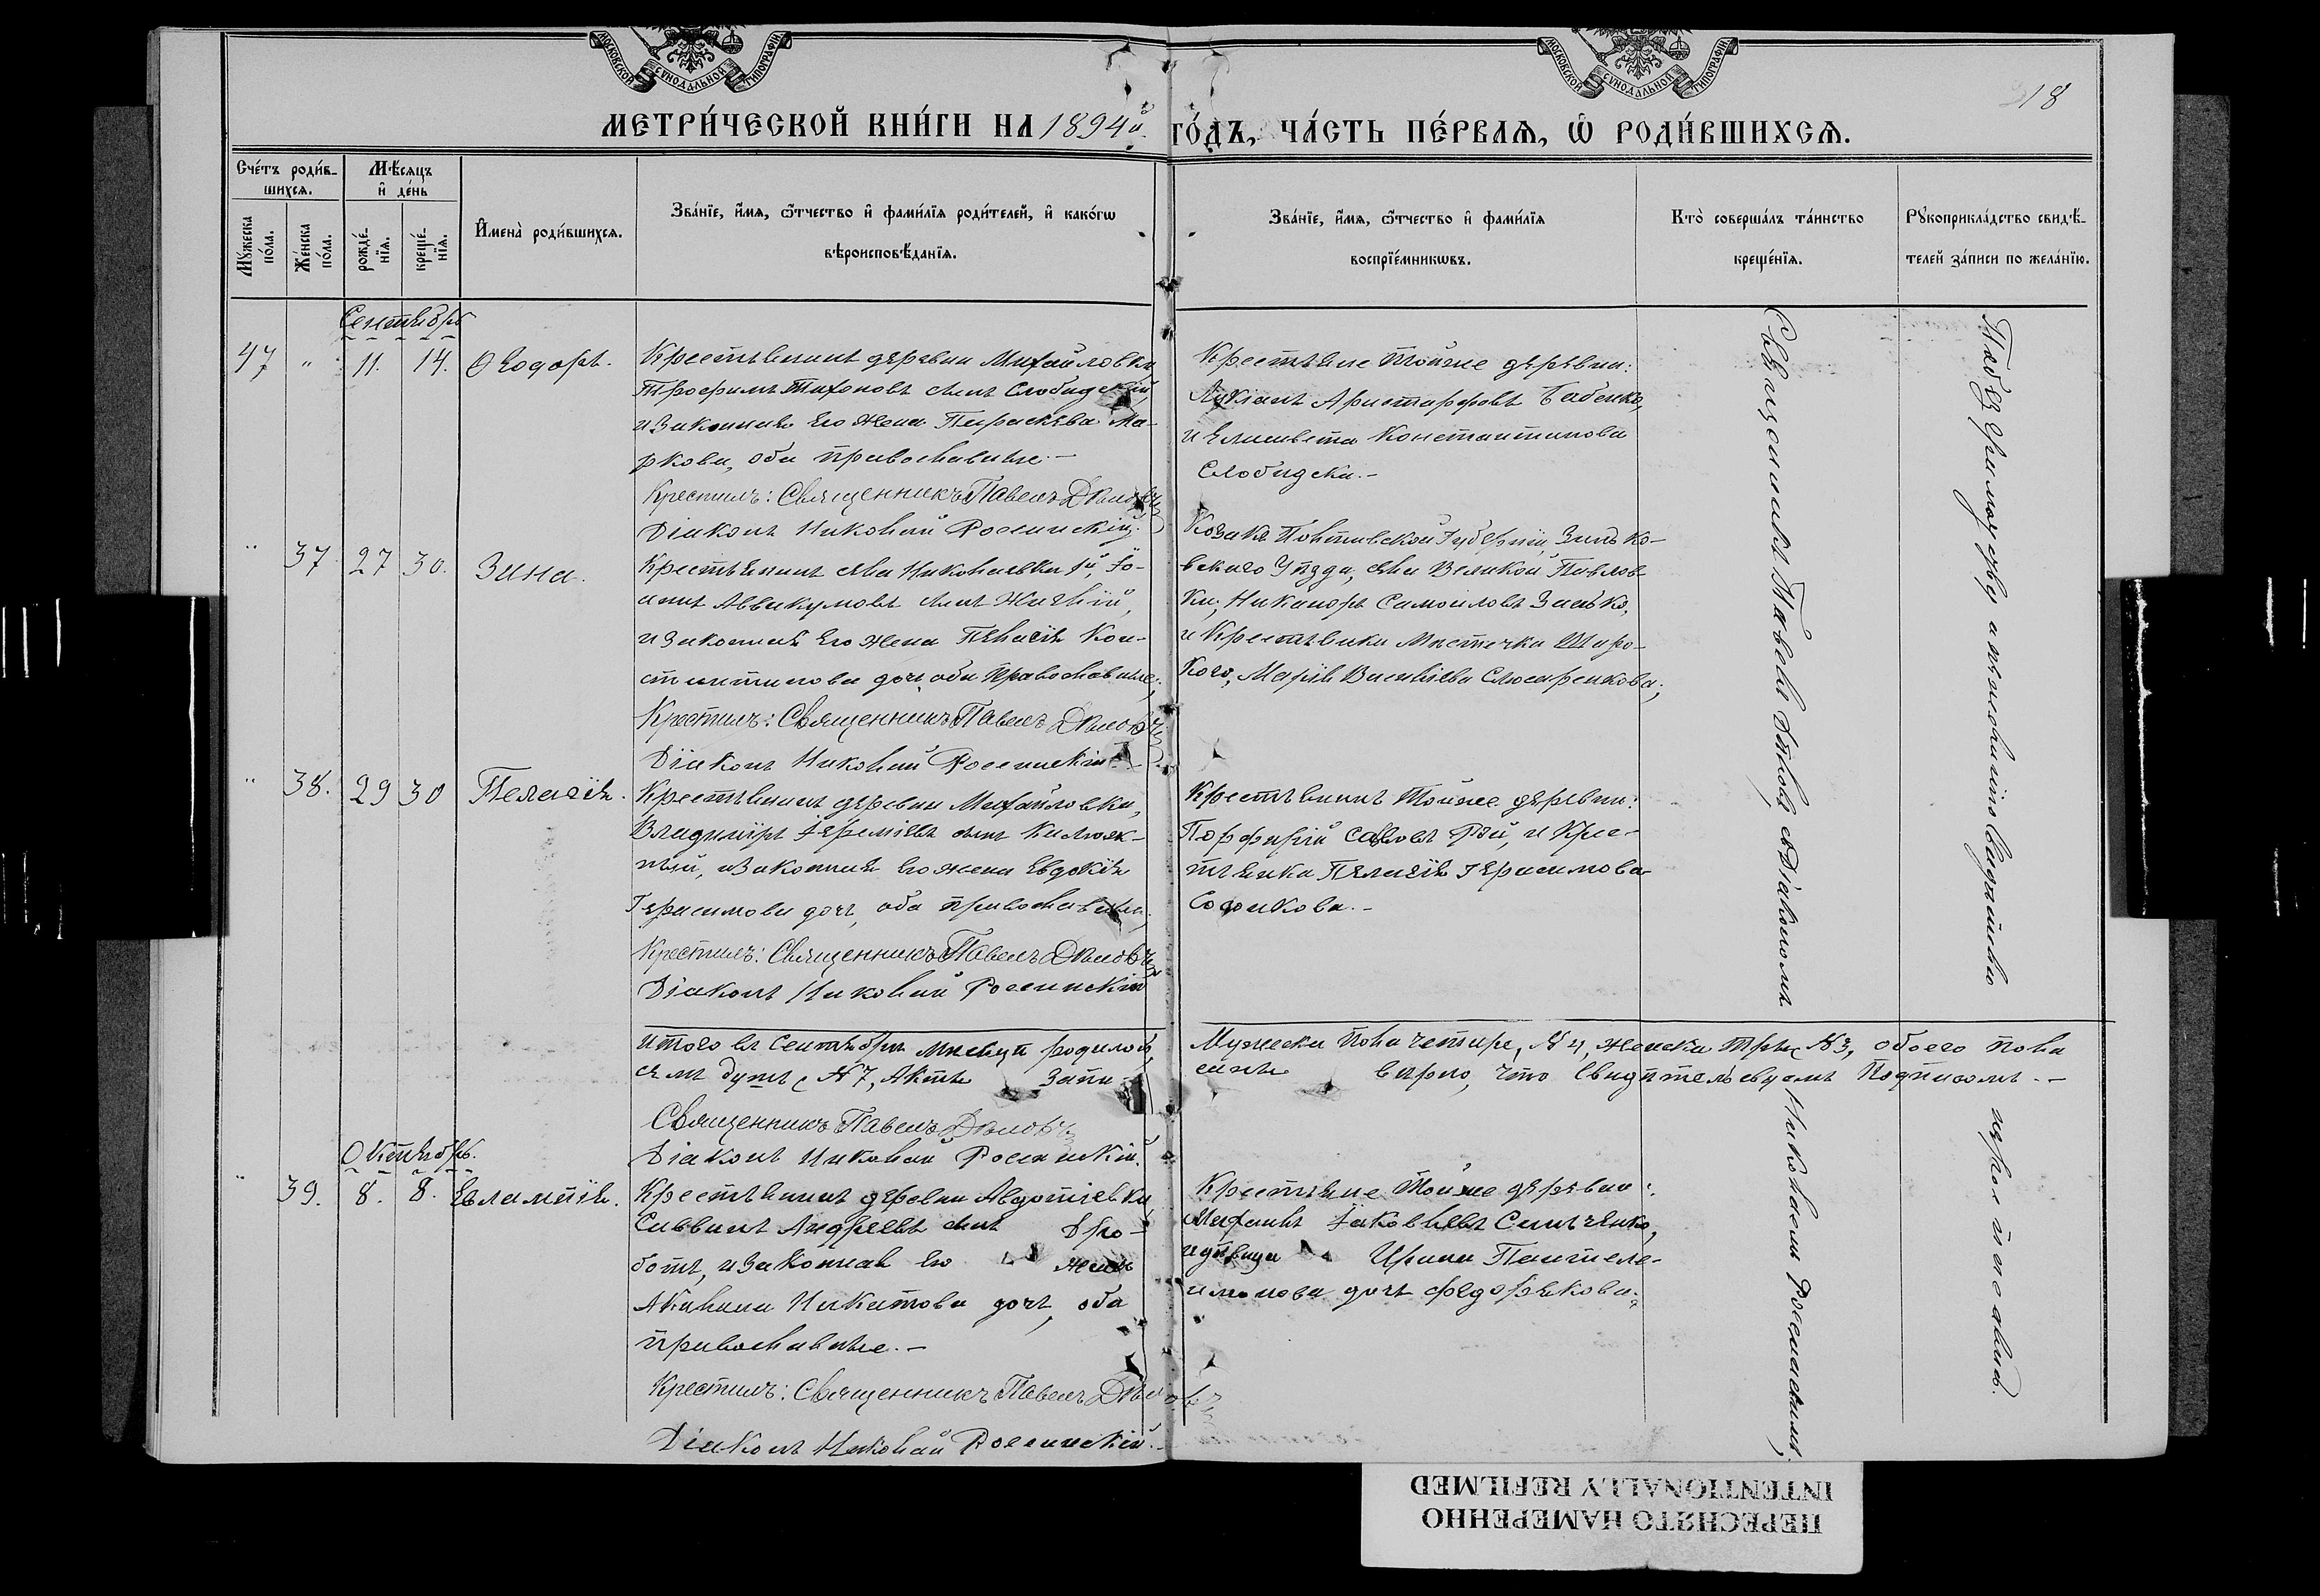 МОСКОВСКОЙ СѴНОДАЛЬНОЙ ТИПОГРАФІИ
МОСКОВСКОЙ СѴНОДАЛЬНОЙ ТИПОГРАФІИ
18
МЕТРИ́ЧЕСКОЙ КНИ́ГИ НА 1894й. ГО́ДЪ, ЧА́СТЬ ПЕ́РВАѦ, Ѿ РОДИ́ВШИХСѦ.
Счетъ родив-
шихся.
Мѣсяцъ
и день
Мужеска
пола.
Женска
пола.
рожде-
нія.
креще-
нія.
Имена родившихся.
Званіе, имя, отчество и фамилія родителей, и какогѡ
вѣроисповѣданія.
Званіе, имя, отчество и фамилія
воспріемникѡвъ.
Кто совершалъ таинство
крещенія.
Рукоприкладство свидѣ-
телей записи по желанію.
Сентябрь
47 " 11. 14. Ѳеодоръ.
Крестьянинъ деревни Михайловки
Трофимъ Тихоновъ сынъ Слободскій,
и законная его жена Параскева Ма-
ркова, оба православные.-
Крестилъ: Священникъ Павелъ
Діаконъ Николай Россинскій.
Крестьяне тойже деревни:
Лукіанъ Аристарховъ Бабенко,
и Елисавета Константинова
Слободска.-
" 37 27 30. Зина.
Крестьянинъ села Николаевки 1й, Іо-
аннъ Аввакумовъ сынъ
и законная его жена Пелагія Кон-
стантинова дочь, оба православные;
Крестилъ: Священникъ Павелъ
Діаконъ Николай Россинскій.-
Козакъ Полтавской Губерніи, Зинько-
вскаго Уѣзда, села Великой Павлов-
ки, Никаноръ Самойловъ Заико,
и Крестьянка Мѣстечка Широ-
кого, Марія Васильева Слюсаренкова;
" 38. 29 30 Пелагія.
Крестьянинъ деревни Михайловки,
Владиміръ Іереміевъ сынъ
и законная его жена Евдокія
Герасимова дочь, оба православные.
Крестилъ: Священникъ Павелъ
Діаконъ Николай Россинскій
Крестьянинъ тойже деревни:
Порфирій Савовъ Рой, и Крес-
тьянка Пелагія Герасимова
Итого въ Сентябрѣ мѣсяцѣ родилось
семь душъ, № 7, Актъ Запи-
Мужеска пола четыре, № 4, женска три, № 3, обоего пола
санъ вѣрно, что свидѣтельствуемъ подписомъ.-
Священникъ Павелъ
Діаконъ Николай Россинскій.
Октябрь.
" 39. 8. 8. Евлампія.
Крестьянинъ деревни Авдотіевки,
Саввинъ Андреевъ сынъ Дро-
ботъ, и законная его жена
Акилина Никитова дочь, оба
православные.-
Крестилъ: Священникъ Павелъ
Діаконъ Николай Россинскій.
Крестьяне тойже деревни:
Яковлевъ
и дѣвица Ирина Пантеле-
имонова дочь Федоренкова.
Священникъ Павелъ съ Діакономъ
Николаемъ Россинскимъ.
ПЕРЕСНЯТО НАМЕРЕННО
INTENTIONALLY REFILMED